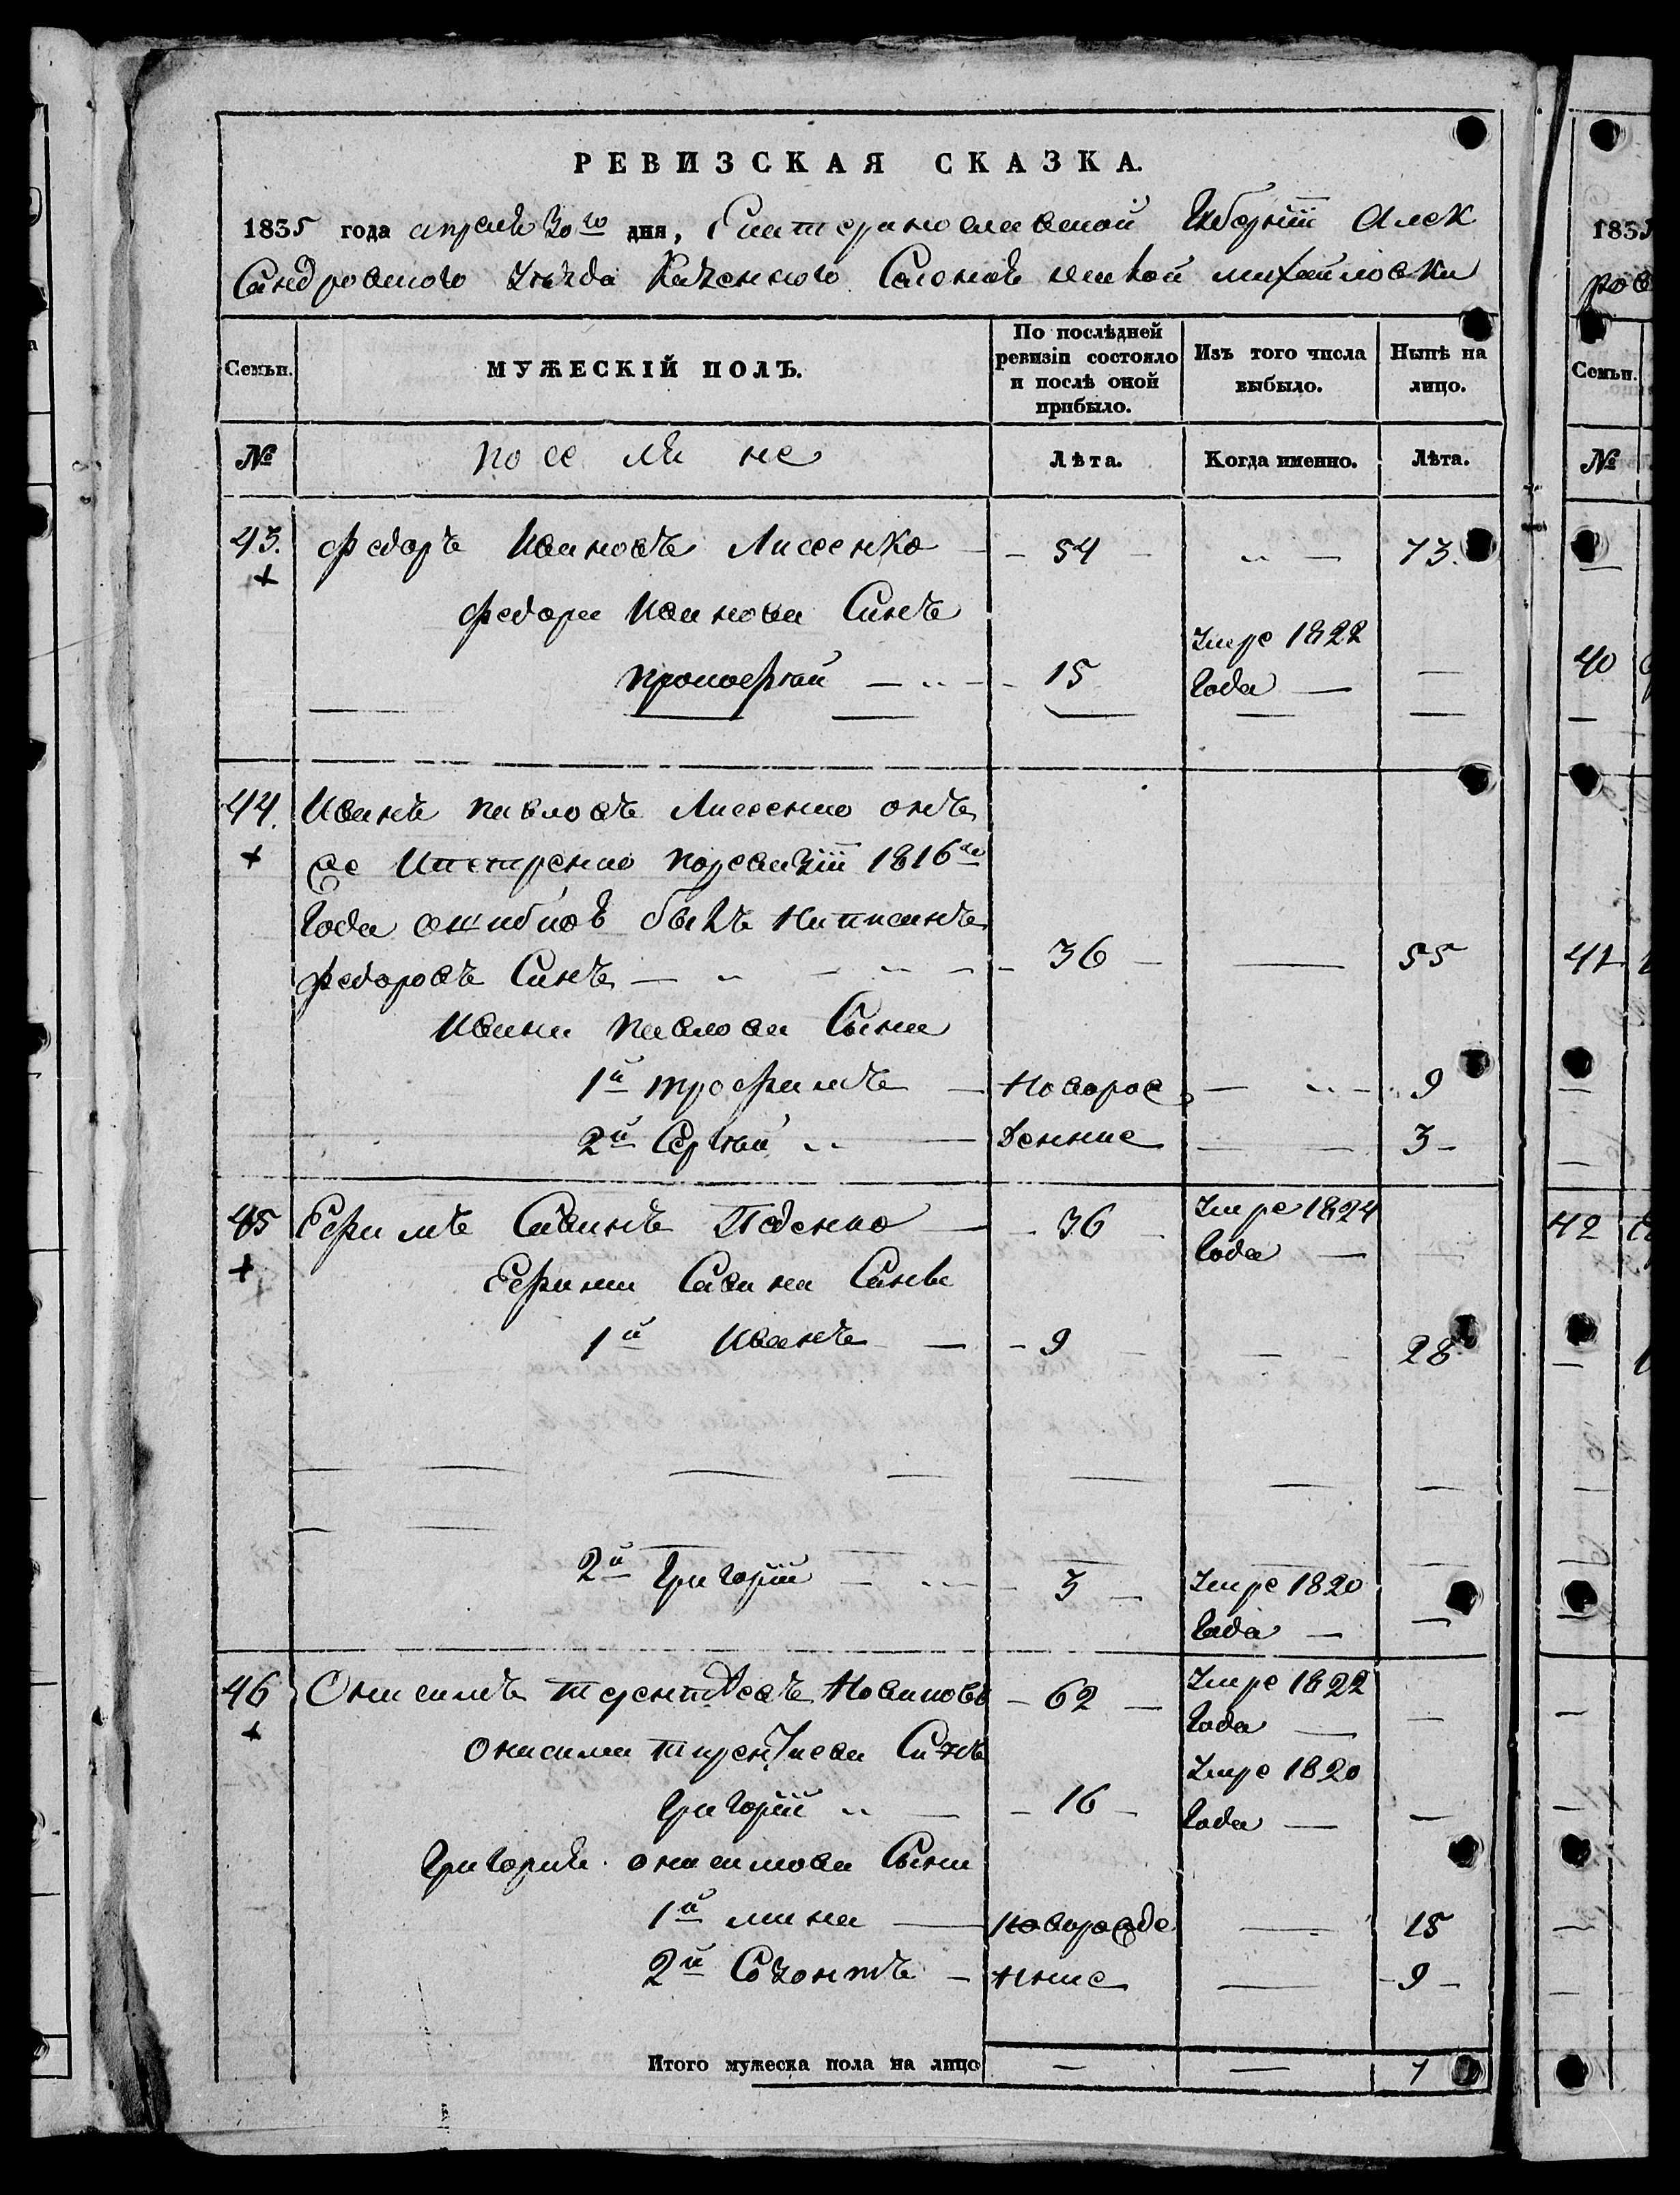 РЕВИЗСКАЯ СКАЗКА.
1835 года апреля 30го дня, Екатеринославской Губернiи Алек
Сандровского уезда Казенного Селения михайловки
Семьи. МУЖЕСКIЙ ПОЛЪ. По послѣдней ревизiи состояло и послѣ оной прибыло. Изъ того числа выбыло. Нынѣ на лицо.
№ поселяне Лѣта. Когда именно. Лѣта.
43. Федоръ Ивановъ Лисенко 54 73.
Федора Иванова Синъ
Прокофий 15 умре 1822 Года
44. Иванъ павловъ Лисенко онъ
же поревизiи 1816го
Года ошибкою былъ Написанъ
Федоровъ Синъ 36 55
Ивана павлова Сыни
1й трофимъ Новорож 9
2й Сергей денние 3
45 Ефимъ Савинъ 36 умре 1824 Года
Ефима Савина Синве
1й Иванъ 9 28
2й Григорiй 3 умре 1820 Года
46 Онисимъ терентiевъ Новиковъ 62 умре 1822 Года
Онисима тирентиева Синъ
Григорiй 16 умре 1820 Года
Григория онисимова Сыни
1й мина Новорожде 15
2й Созонтъ нние 9
Итого мужеска пола на лицо 7
1835
ров
Семьи.
№
40
41
42